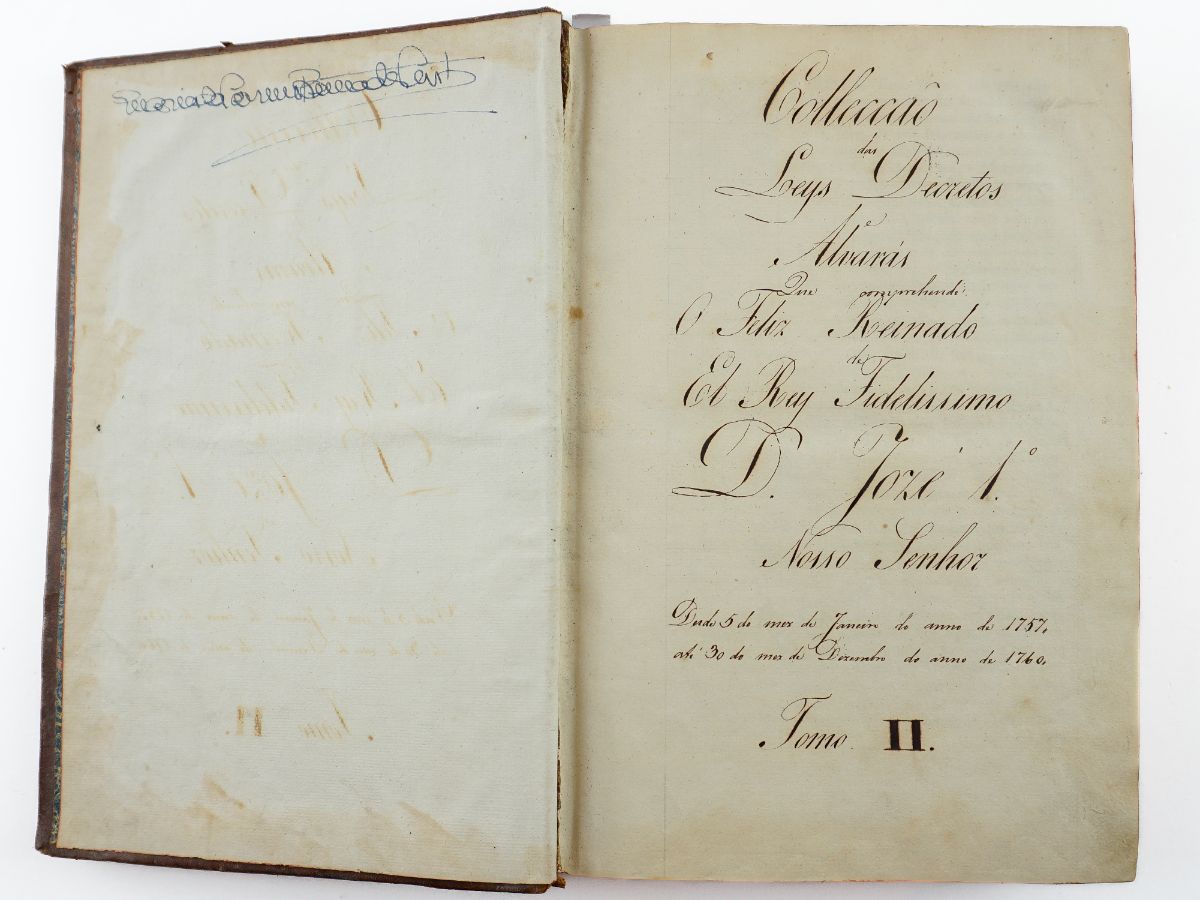 Collecçaõ
das
Leys Decretos
e
Alvarás
Que comprehende
O Feliz Reinado
de
El Rey Fidelissimo
D. Jozé 1.º
Nosso Senhor
Desde 5 do mez de Janeiro do anno de 1757.
até 30 do mez de Dezembro do anno de 1760.
Tomo II.